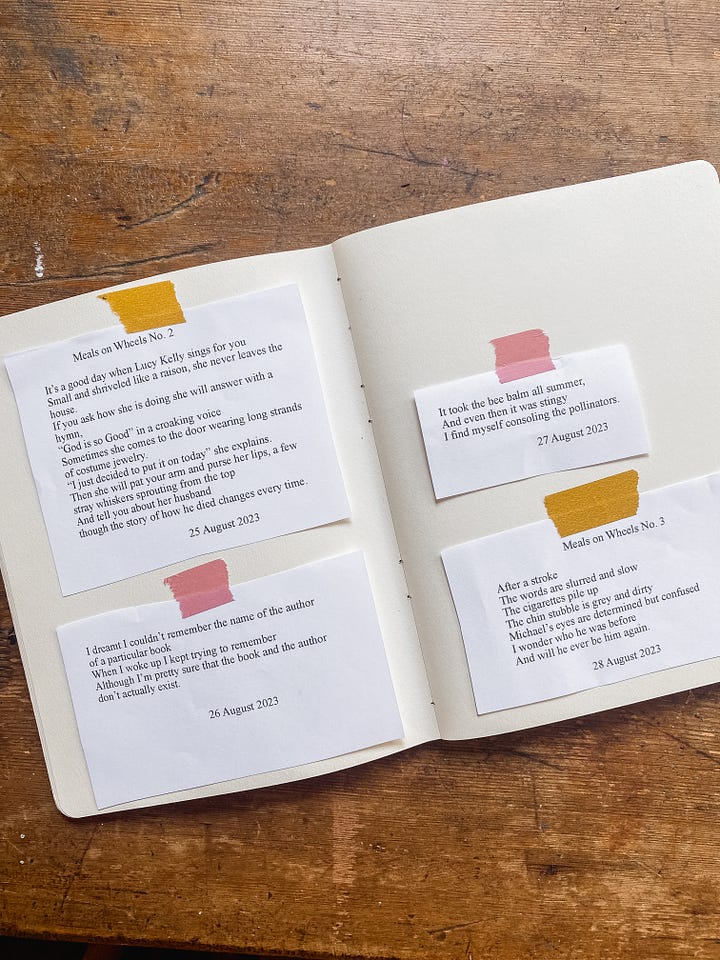 Meals on Wheels No. 2
It's a good day when Lucy Kelly sings for you
Small and shriveled like a raison, she never leaves the
house.
If you ask how she is doing she will answer with a
hymn,
"God is so Good" in a croaking voice
Sometimes she comes to the door wearing long strands
of costume jewelry.
"I just decided to put it on today" she explains.
Then she will pat your arm and purse her lips, a few
stray whiskers sprouting from the top
And tell you about her husband
though the story of how he died changes every time.
25 August 2023
I dreamt I couldn't remember the name of the author
of a particular book
When I woke up I kept trying to remember
Although I'm pretty sure that the book and the author
don't actually exist.
26 August 2023
It took the bee balm all summer,
And even then it was stingy
I find myself consoling the pollinators.
27 August 2023
Meals on Wheels No. 3
After a stroke
The words are slurred and slow
The cigarettes pile up
The chin stubble is grey and dirty
Michael's eyes are determined but confused
I wonder who he was before
And will he ever be him again.
28 August 2023